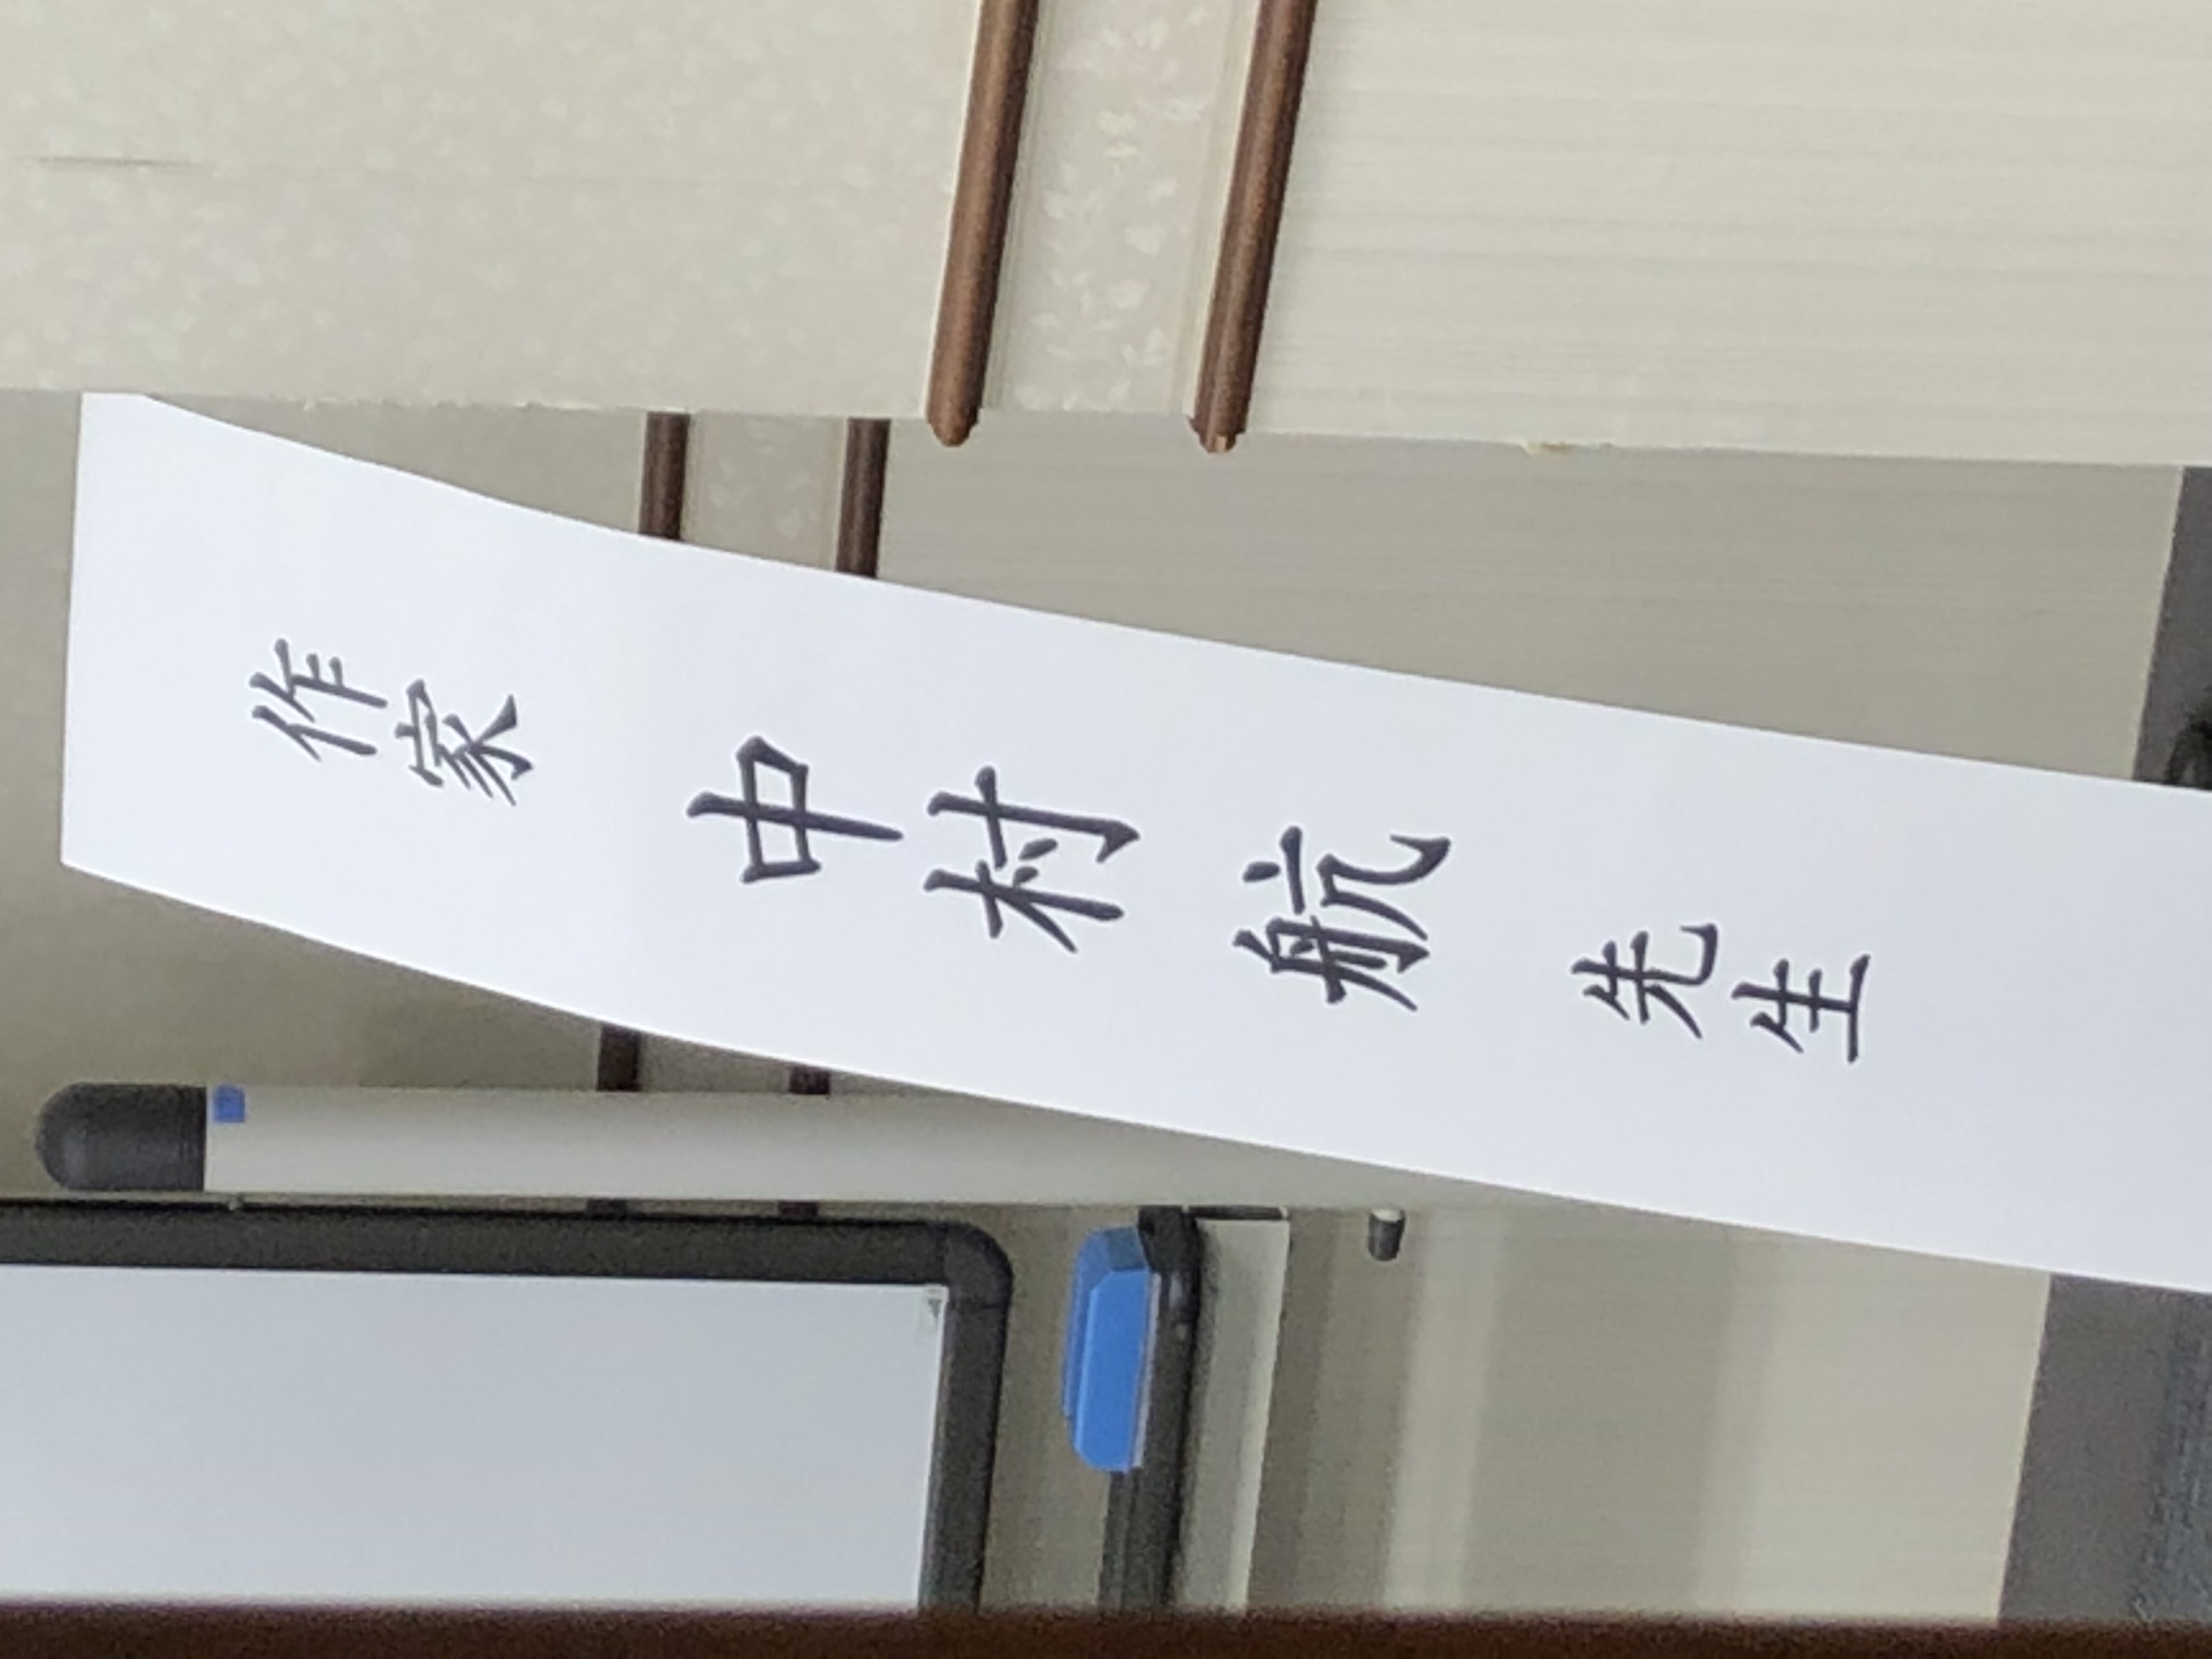 作家　中村　航　先生